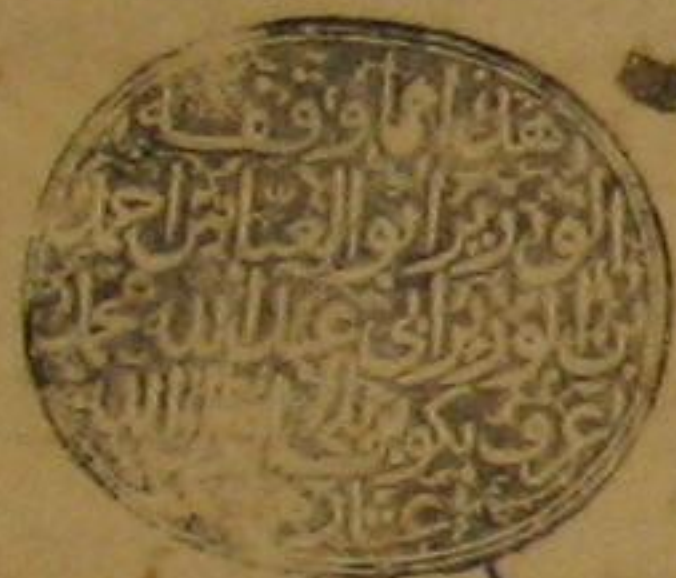 هذا مما وقفه
الوزير ابو العباس احمد
بن الوزير ابي عبد الله محمد
عرف بكوبريلي الله
عثار